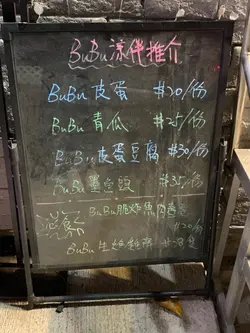 BuBu 涼伴推介
BuBu 皮蛋 #20/份
BuBu 青瓜 #25/份
BuBu 皮蛋豆腐 #30/份
BuBu 墨魚頭 #35/份
BuBu脆炸魚肉
#20/份
BuBu 生